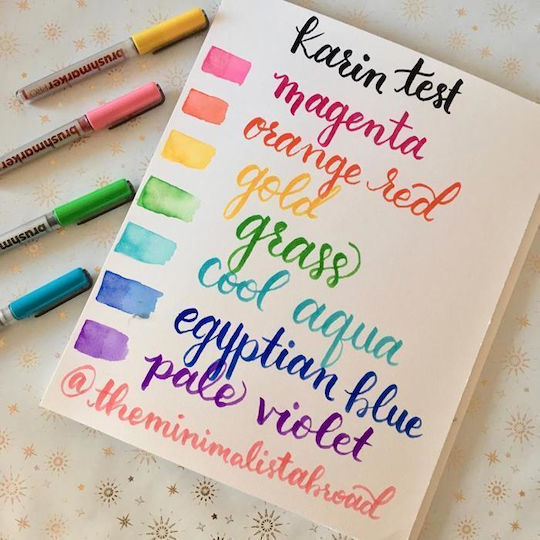 Karin test
magenta
orange red
gold
grass
cool aqua
egyptian blue
pale violet
@theminimalistabroad
brushmarkerPRO
brushmarker
brushmarker
brushma